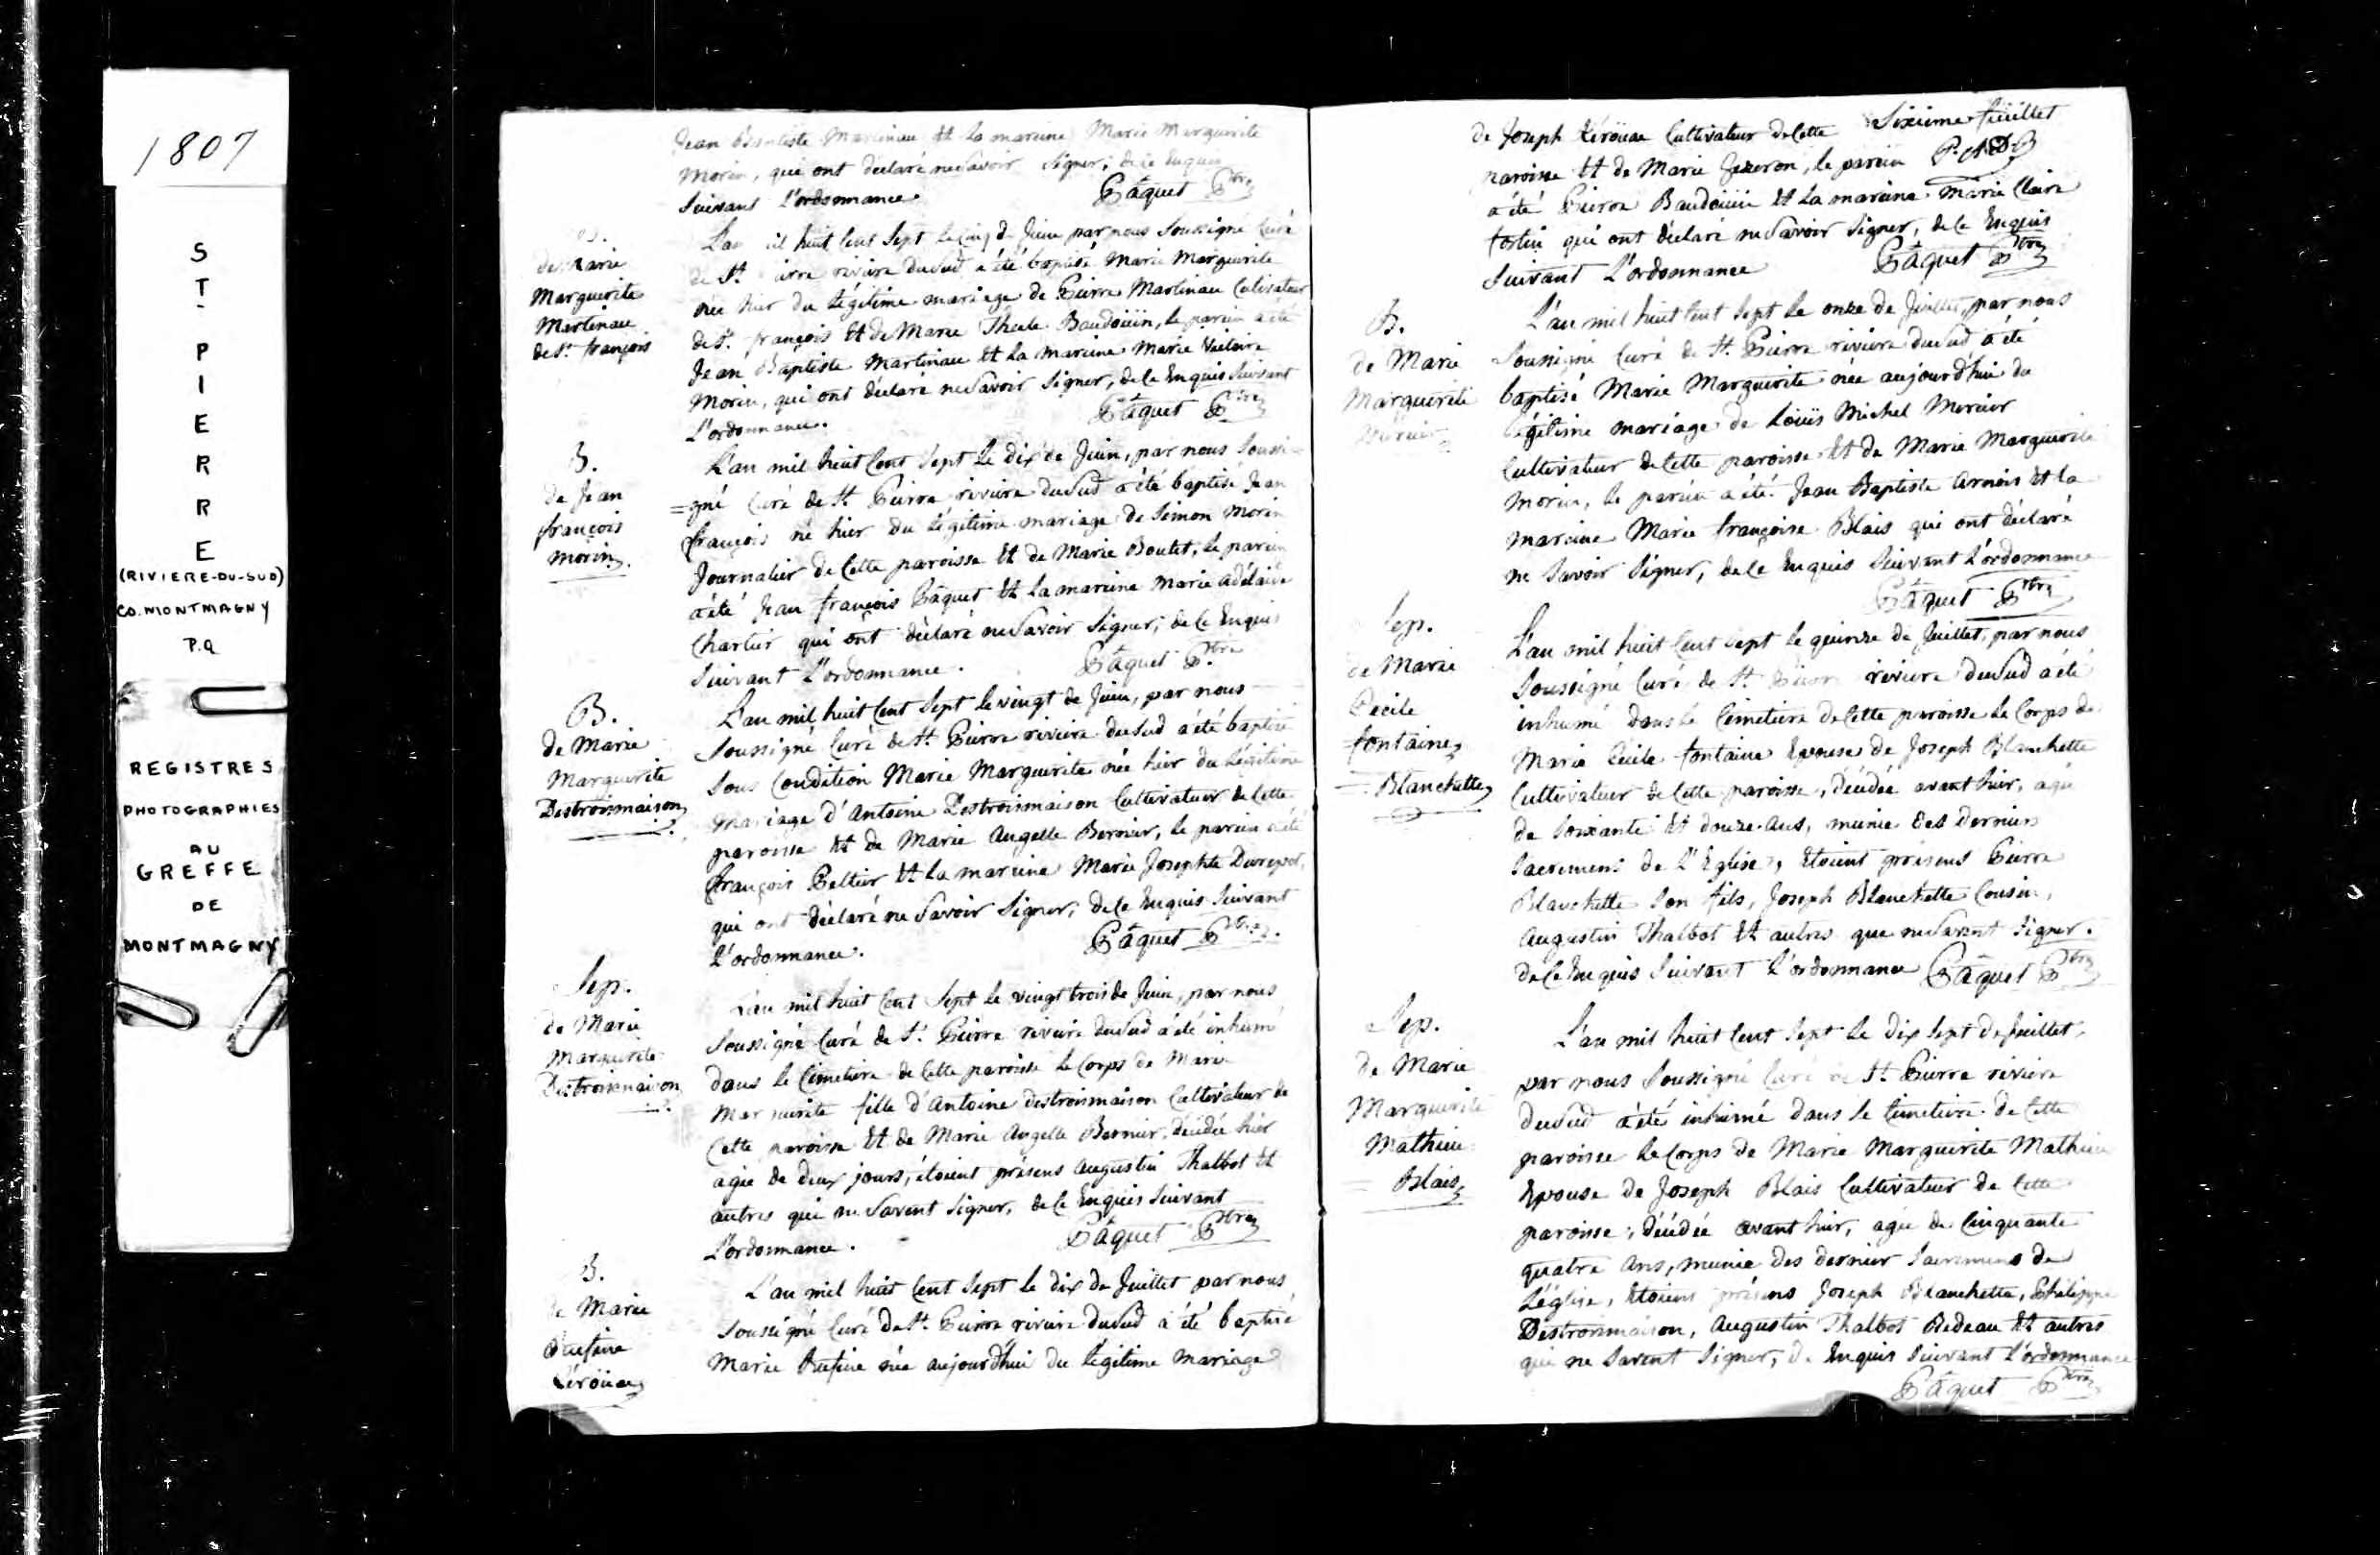 1807
ST-PIERRE
(RIVIERE-DU-SUD)
CO. MONTMAGNY
P.Q
REGISTRES
PHOTOGRAPHIES
AU
GREFFE
DE
MONTMAGNY
Jean Baptiste Martineau Et la maraine Marie Marguerite
Morin, qui ont déclaré ne Savoir Signer, de ce Enquis
Suivant l'ordonnance. Pâquet Ptre
B.
de Marie
Marguerite
Martineau
de St. françois
L'an mil huit Cent Sept le cinq de Juin par nous Soussigné Curé
de St. Pierre riviere du Sud a été baptisé Marie Marguerite
née hier du légitime mariage de Pierre Martinau Cultivateur
de St. françois Et de Marie Thecle Baudoüin, le parein a été
Jean Baptiste Martinau Et la maraine Marie Victoire
Morin, qui ont déclaré ne Savoir Signer, de ce Enquis Suivant
L'ordonnance. Pâquet Ptre
B.
de Jean
françois
morin
L'an mil huit Cent Sept le dix de Juin, par nous Soussi=
=gné Curé de St. Pierre riviere du Sud a été baptisé Jean
françois né hier du légitime mariage de Simon Morin
Journalier de Cette paroisse Et de Marie Boulet, le parein
a été Jean françois Pâquet Et la maraine Marie adélaide
Chartier qui ont déclaré ne Savoir Signer, de ce Enquis
Suivant L'ordonnance. Pâquet Ptre
B.
de Marie
Marguerite
Destroismaison
L'an mil huit Cent Sept le vingt de Juin, par nous
Soussigné Curé de St. Pierre riviere du Sud a été baptisé
Sous Condition Marie Marguerite née hier du légitime
mariage d'Antoine Destroismaison Cultivateur de Cette
paroisse Et de Marie Angelle Bernier, le parein a été
françois Peltier Et la maraine Marie Josephte
qui ont déclaré ne Savoir Signer, de ce Enquis Suivant
L'ordonnance. Pâquet Ptre.
Sep.
de Marie
Marguerite
Destroismaison
L'an mil huit Cent Sept le vingt trois de Juin, par nous
Soussigné Curé de St. Pierre riviere du Sud a été inhumé
dans le Cimetiere de Cette paroisse le Corps de Marie
Marguerite fille d'Antoine destroismaison Cultivateur de
Cette paroisse Et de Marie Angelle Bernier, décédée hier
agée de deux jours, étoient présens Augustin Thalbot Et
autres qui ne Savent Signer, de ce Enquis Suivant
L'ordonnance. Pâquet Ptre
B.
de Marie
Kéroüac
L'an mil huit Cent Sept le dix de Juillet par nous
Soussigné Curé de St. Pierre riviere du Sud a été baptisé
Marie née aujourdhui du légitime mariage
Sixieme feüillet
de Joseph Kéroüac Cultivateur de Cette
paroisse Et de Marie le parein
a été Pierre Baudoüin Et la maraine Marie Claire
fortin qui ont déclaré ne Savoir Signer, de ce Enquis
Suivant L'ordonnance Pâquet Ptre
B.
de Marie
Marguerite
Mercier
L'an mil huit Cent Sept le onze de Juillet, par nous
Soussigné Curé de St. Pierre riviere du Sud a été
baptisé Marie Marguerite née aujourd'hui du
légitime mariage de Loüis Michel Mercier
Cultivateur de Cette paroisse Et de Marie Marguerite
Morin, le parein a été Jean Baptiste Et la
maraine Marie françoise Blais qui ont déclaré
ne Savoir Signer, de ce Enquis Suivant L'ordonnance
Pâquet Ptre
Sep.
de Marie
Cécile
fontaine
= Blanchette
L'an mil huit Cent Sept le quinze de Juillet, par nous
Soussigné Curé de St. Pierre riviere du Sud a été
inhumé dans le Cimetiere de Cette paroisse le Corps de
Marie Cécile fontaine Epouse de Joseph Blanchette
Cultivateur de Cette paroisse, décédée avant hier, agée
de Soixante Et douze ans, munie des derniers
Sacremens de l'Eglise, Etoient présens Pierre
Blanchette Son fils, Joseph Blanchette Cousin,
Augustin Thalbot Et autres qui ne Savent Signer.
de ce Enquis Suivant L'ordonnance Pâquet Ptre
Sep.
de Marie
Marguerite
Mathieu
= Blais
L'an mil huit Cent Sept le dix Sept de Juillet,
par nous Soussigné Curé de St. Pierre riviere
du Sud a été inhumé dans le Cimetiere de Cette
paroisse le Corps de Marie Marguerite Mathieu
Epouse de Joseph Blais Cultivateur de Cette
paroisse, décédée avant hier, agée de Cinquante
quatre ans, munie des dernier Sacremens de
L'église, Etoient présens Joseph Blanchette, Philippe
Destroismaison, Augustin Thalbot Bedeau Et autres
qui ne Savent Signer, de Enquis Suivant L'ordonnance
Pâquet Ptre